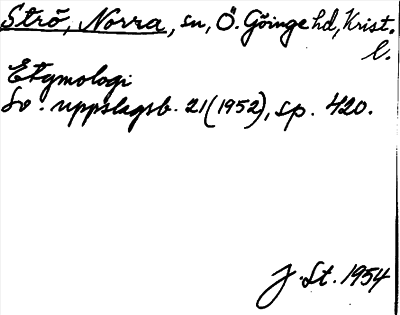 Strö, Norra, sn, Ö. Göinge hd, Krist.
l.
Etymologi
Sv. uppslagsb. 21(1952), sp. 420.
J. St. 1954